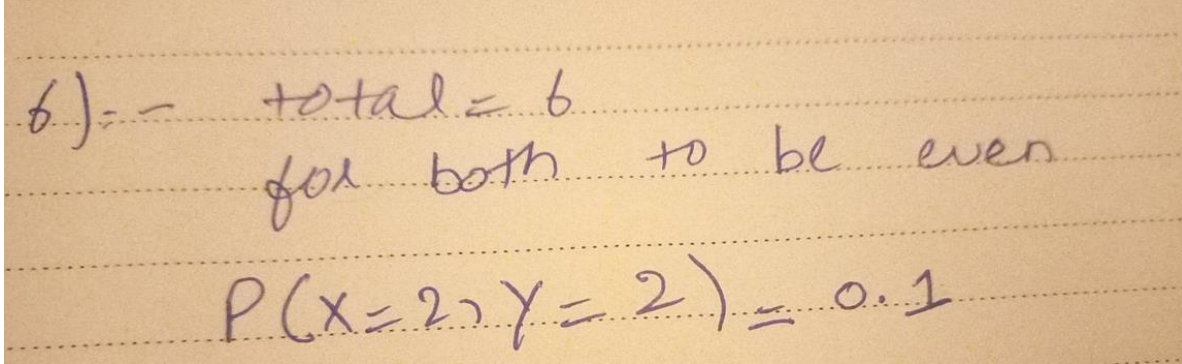 6):- total = 6
for both to be even
P(X=2, Y=2) = 0.1